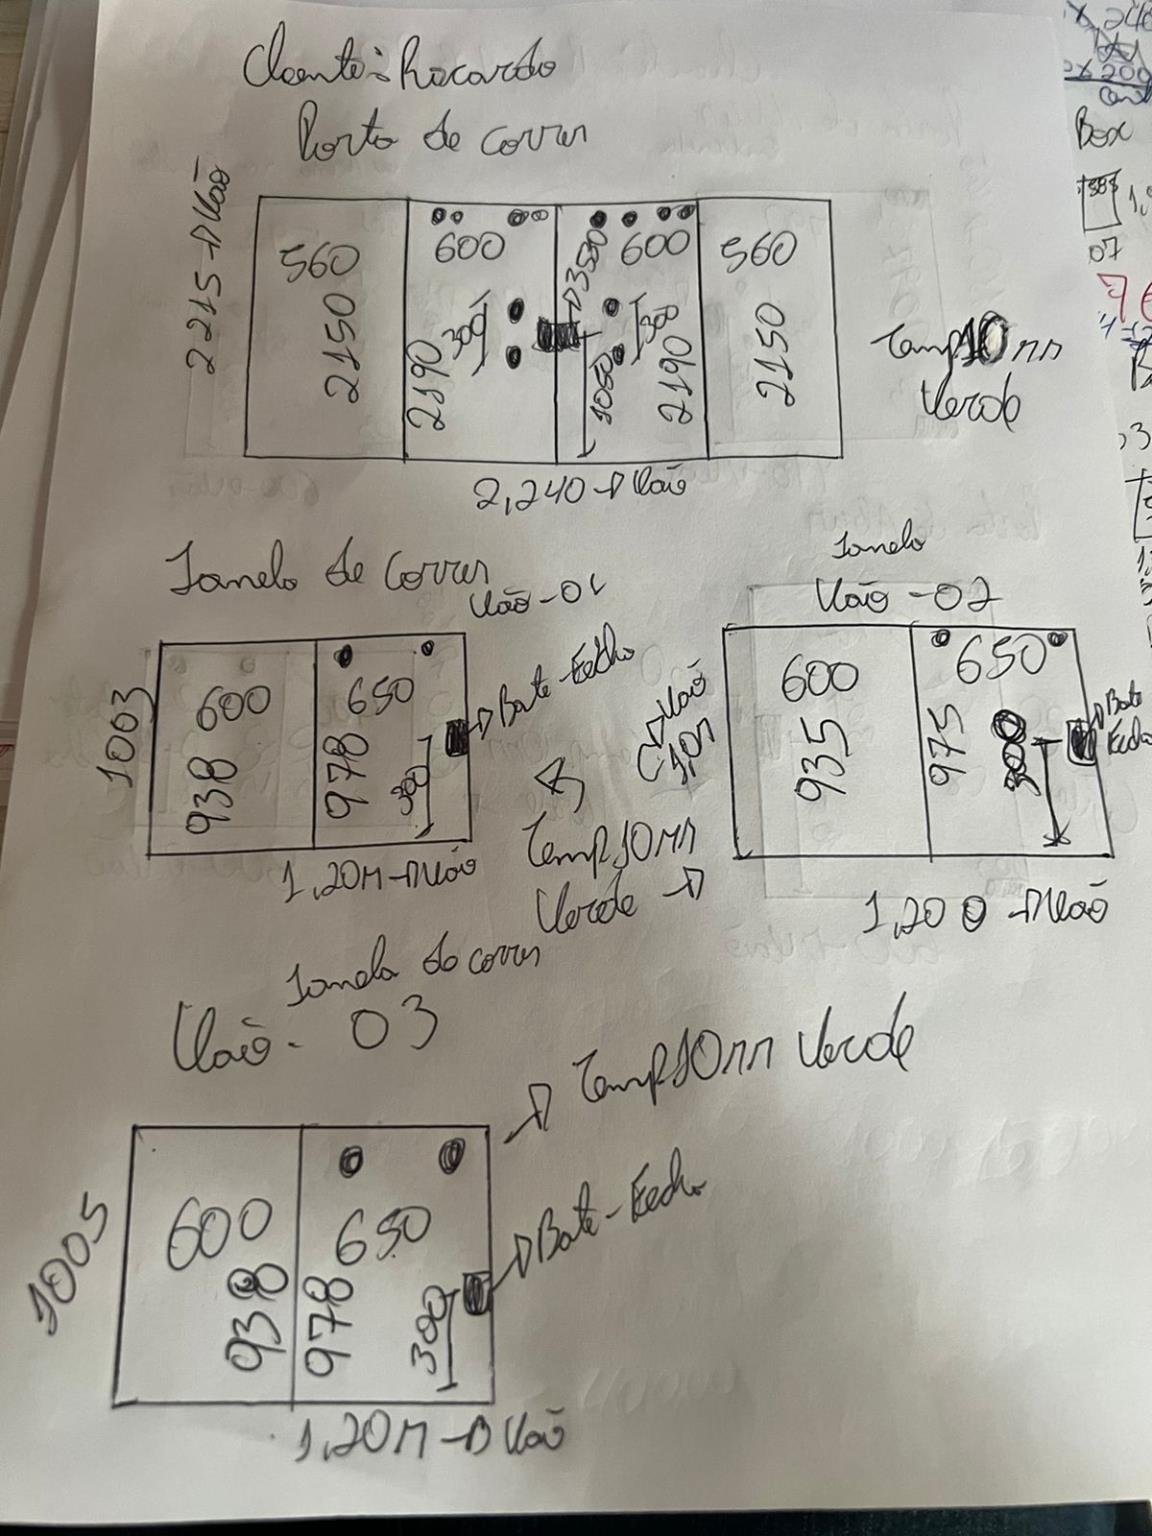 Cliente: Ricardo
Porta de correr
2215 → Vão
560
2150
600
2190
300
3530
600
300
1050
2190
560
2150
Temp 10mm
Verde
2,240 → Vão
Janela de Correr
Vão - 01
1003
600
938
650
978
300
Bate-Fecho
1,20M → Vão
Janela
Vão - 02
Vão
600
935
650
975
300
Bate
Fecho
1,200 → Vão
Temp 10mm
Verde →
Janela de correr
Vão - 03
Temp 10mm Verde
1005
600
938
650
978
300
Bate-Fecho
1,20M → Vão
Box
07